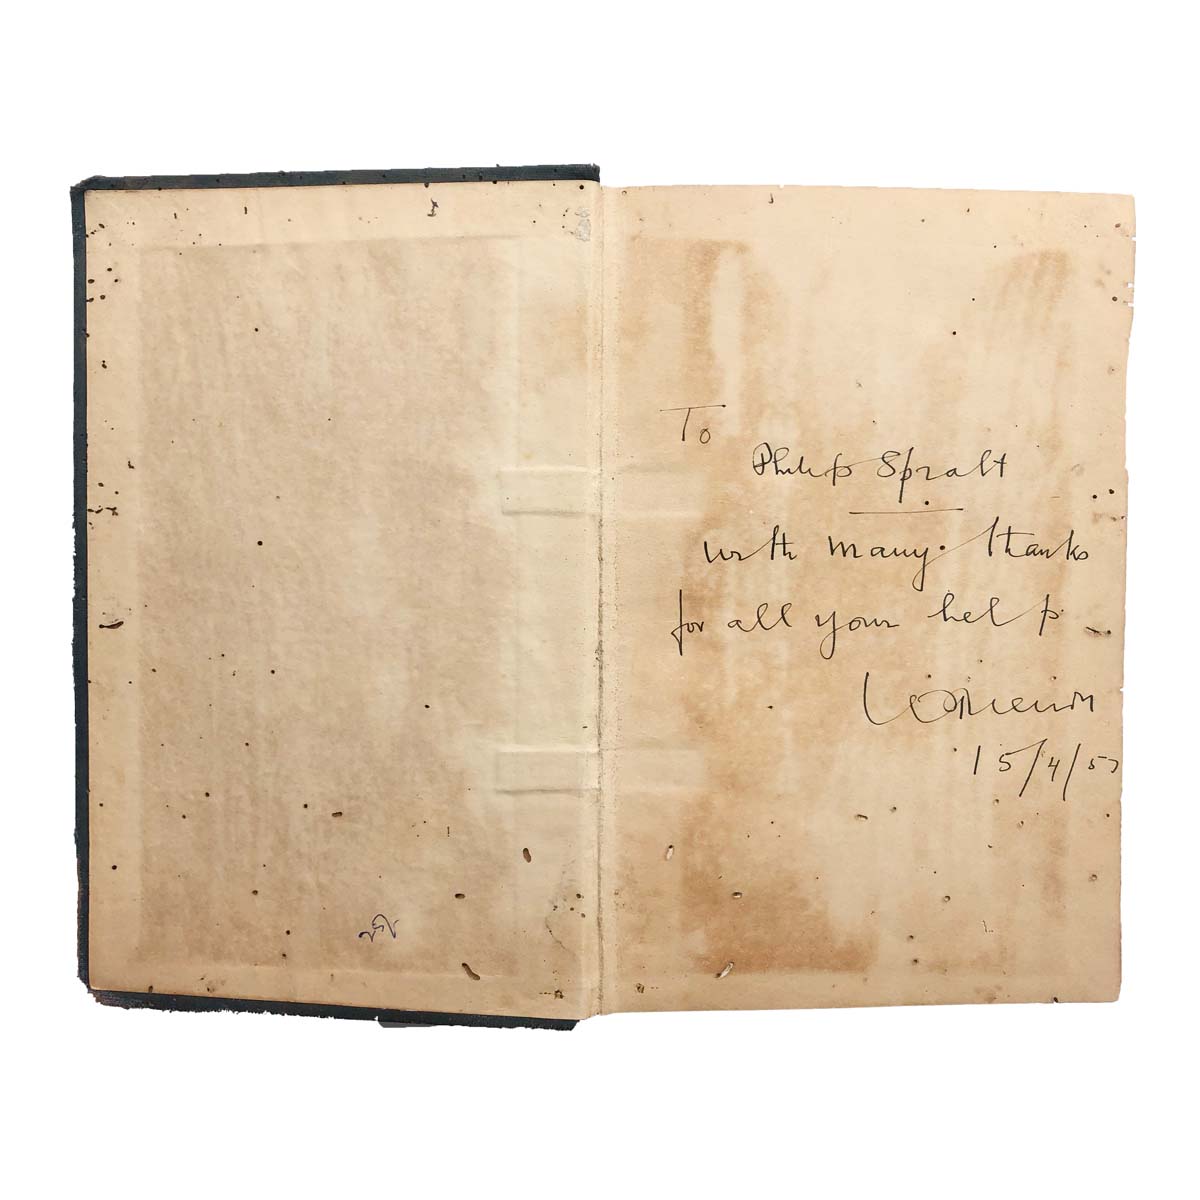 To
Philip Spratt
with many thanks
for all your help
15/4/57